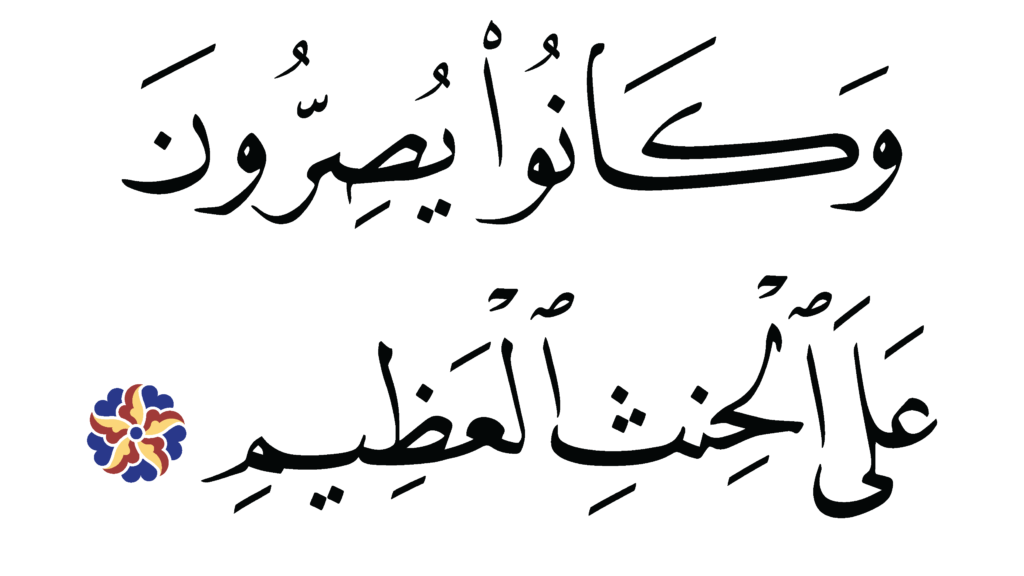 وَكَانُوا۟ يُصِرُّونَ
عَلَى ٱلْحِنثِ ٱلْعَظِيمِ